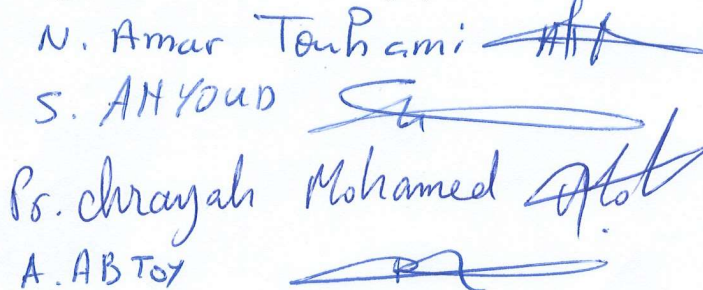 N. Amar Touhami
S. AHYOUD
Pr. chrayah Mohamed
A. ABTOY